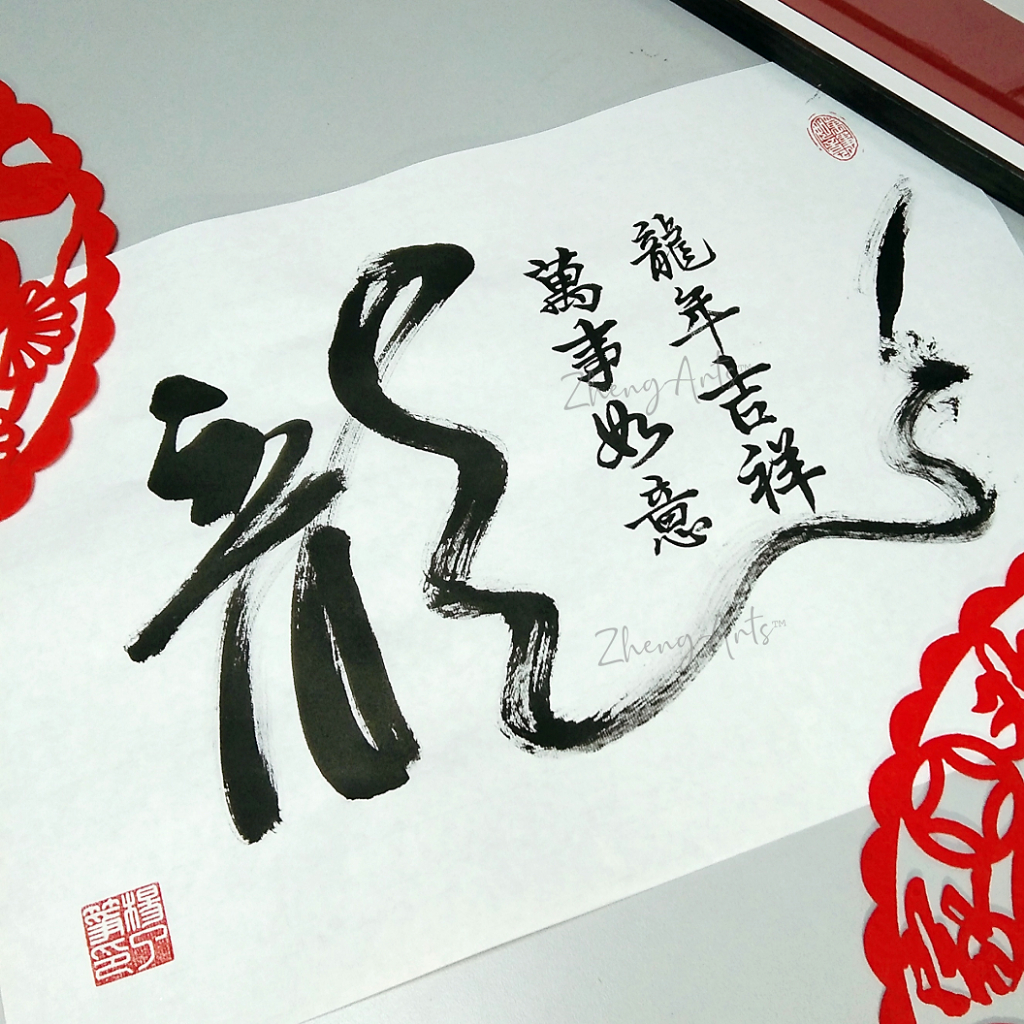 龍
龍年吉祥
萬事如意
ZhengArts
ZhengArts™